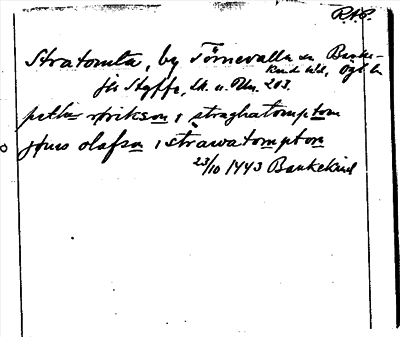 RAP.
Stratomta, by Törnevalla sn, Banke-
kinds hd, Ögl. l.
jfr Styffe, Sk. u. Un. 203.
pether ærikson i straghatompton
jönis olafsa i strawatompton
23/10 1443 Bankekind